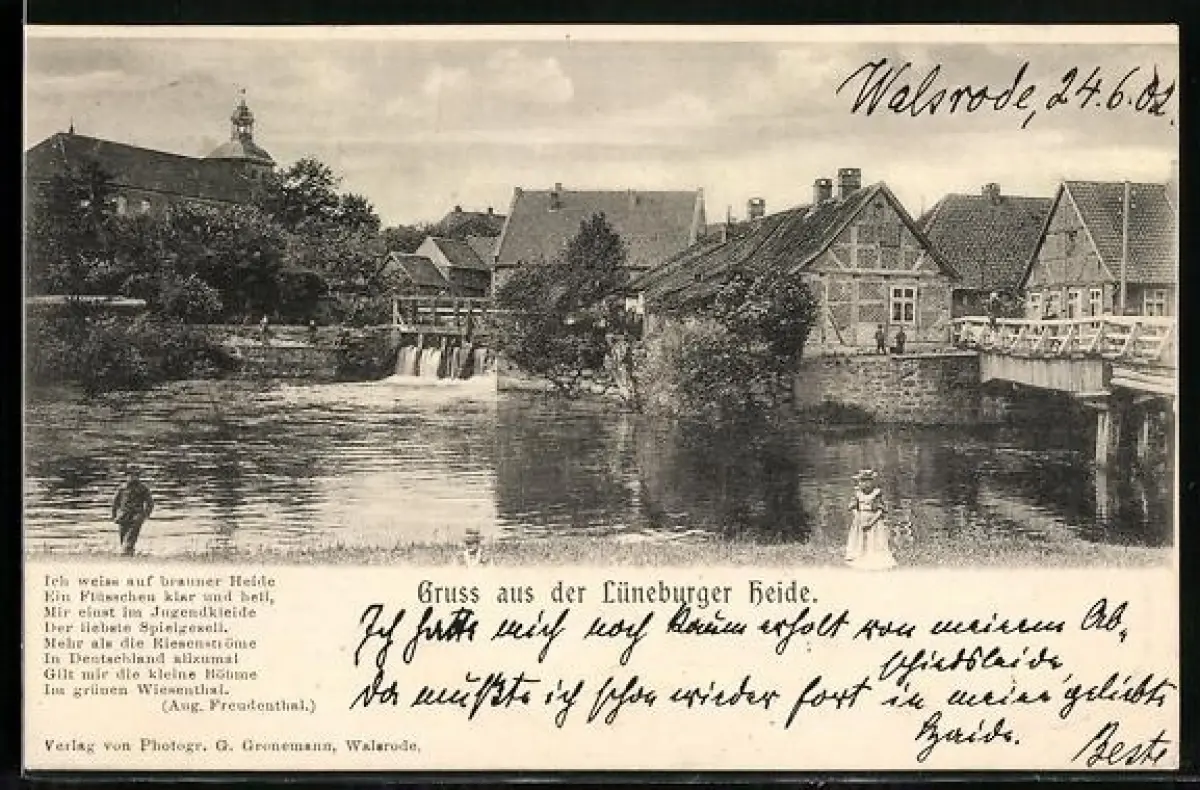 Walsrode, 24.6.02.
Ich weiss auf brauner Heide
Ein Flüsschen klar und hell,
Mir einst im Jugendkleide
Der liebste Spielgesell.
Mehr als die Riesenströme
In Deutschland allzumal
Gilt mir die kleine Böhme
Im grünen Wiesenthal.
(Aug. Freudenthal.)
Verlag von Photogr. G. Gronemann, Walsrode.
Gruss aus der Lüneburger Heide.
Ich hatte mich noch kaum erholt von meinem Ab-
schiedsleide,
Da mußte ich schon wieder fort in meine geliebte
Haide.
Beste